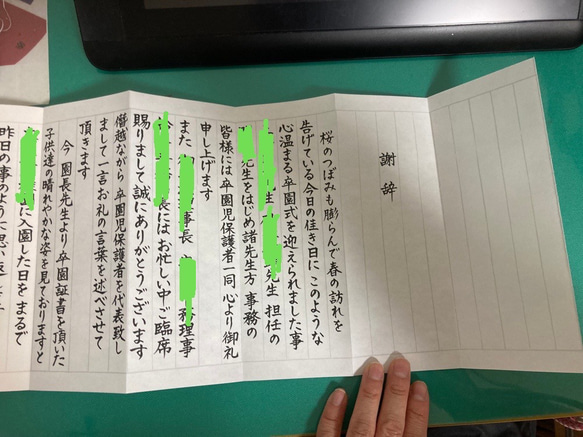 謝辞
桜のつぼみも膨らんで春の訪れを
告げている今日の佳き日に このような
心温まる卒園式を迎えられました事
先生 担任の
先生をはじめ諸先生方 事務の
皆様には卒園児保護者一同 心より御礼
申し上げます
また 事長 務理事
長にはお忙しい中ご臨席
賜りまして誠にありがとうございます
僭越ながら 卒園児保護者を代表致し
まして一言お礼の言葉を述べさせて
頂きます
今 園長先生より卒園証書を頂いた
子供達の晴れやかな姿を見ておりますと
に入園した日をまるで
昨日の事のように思い返し